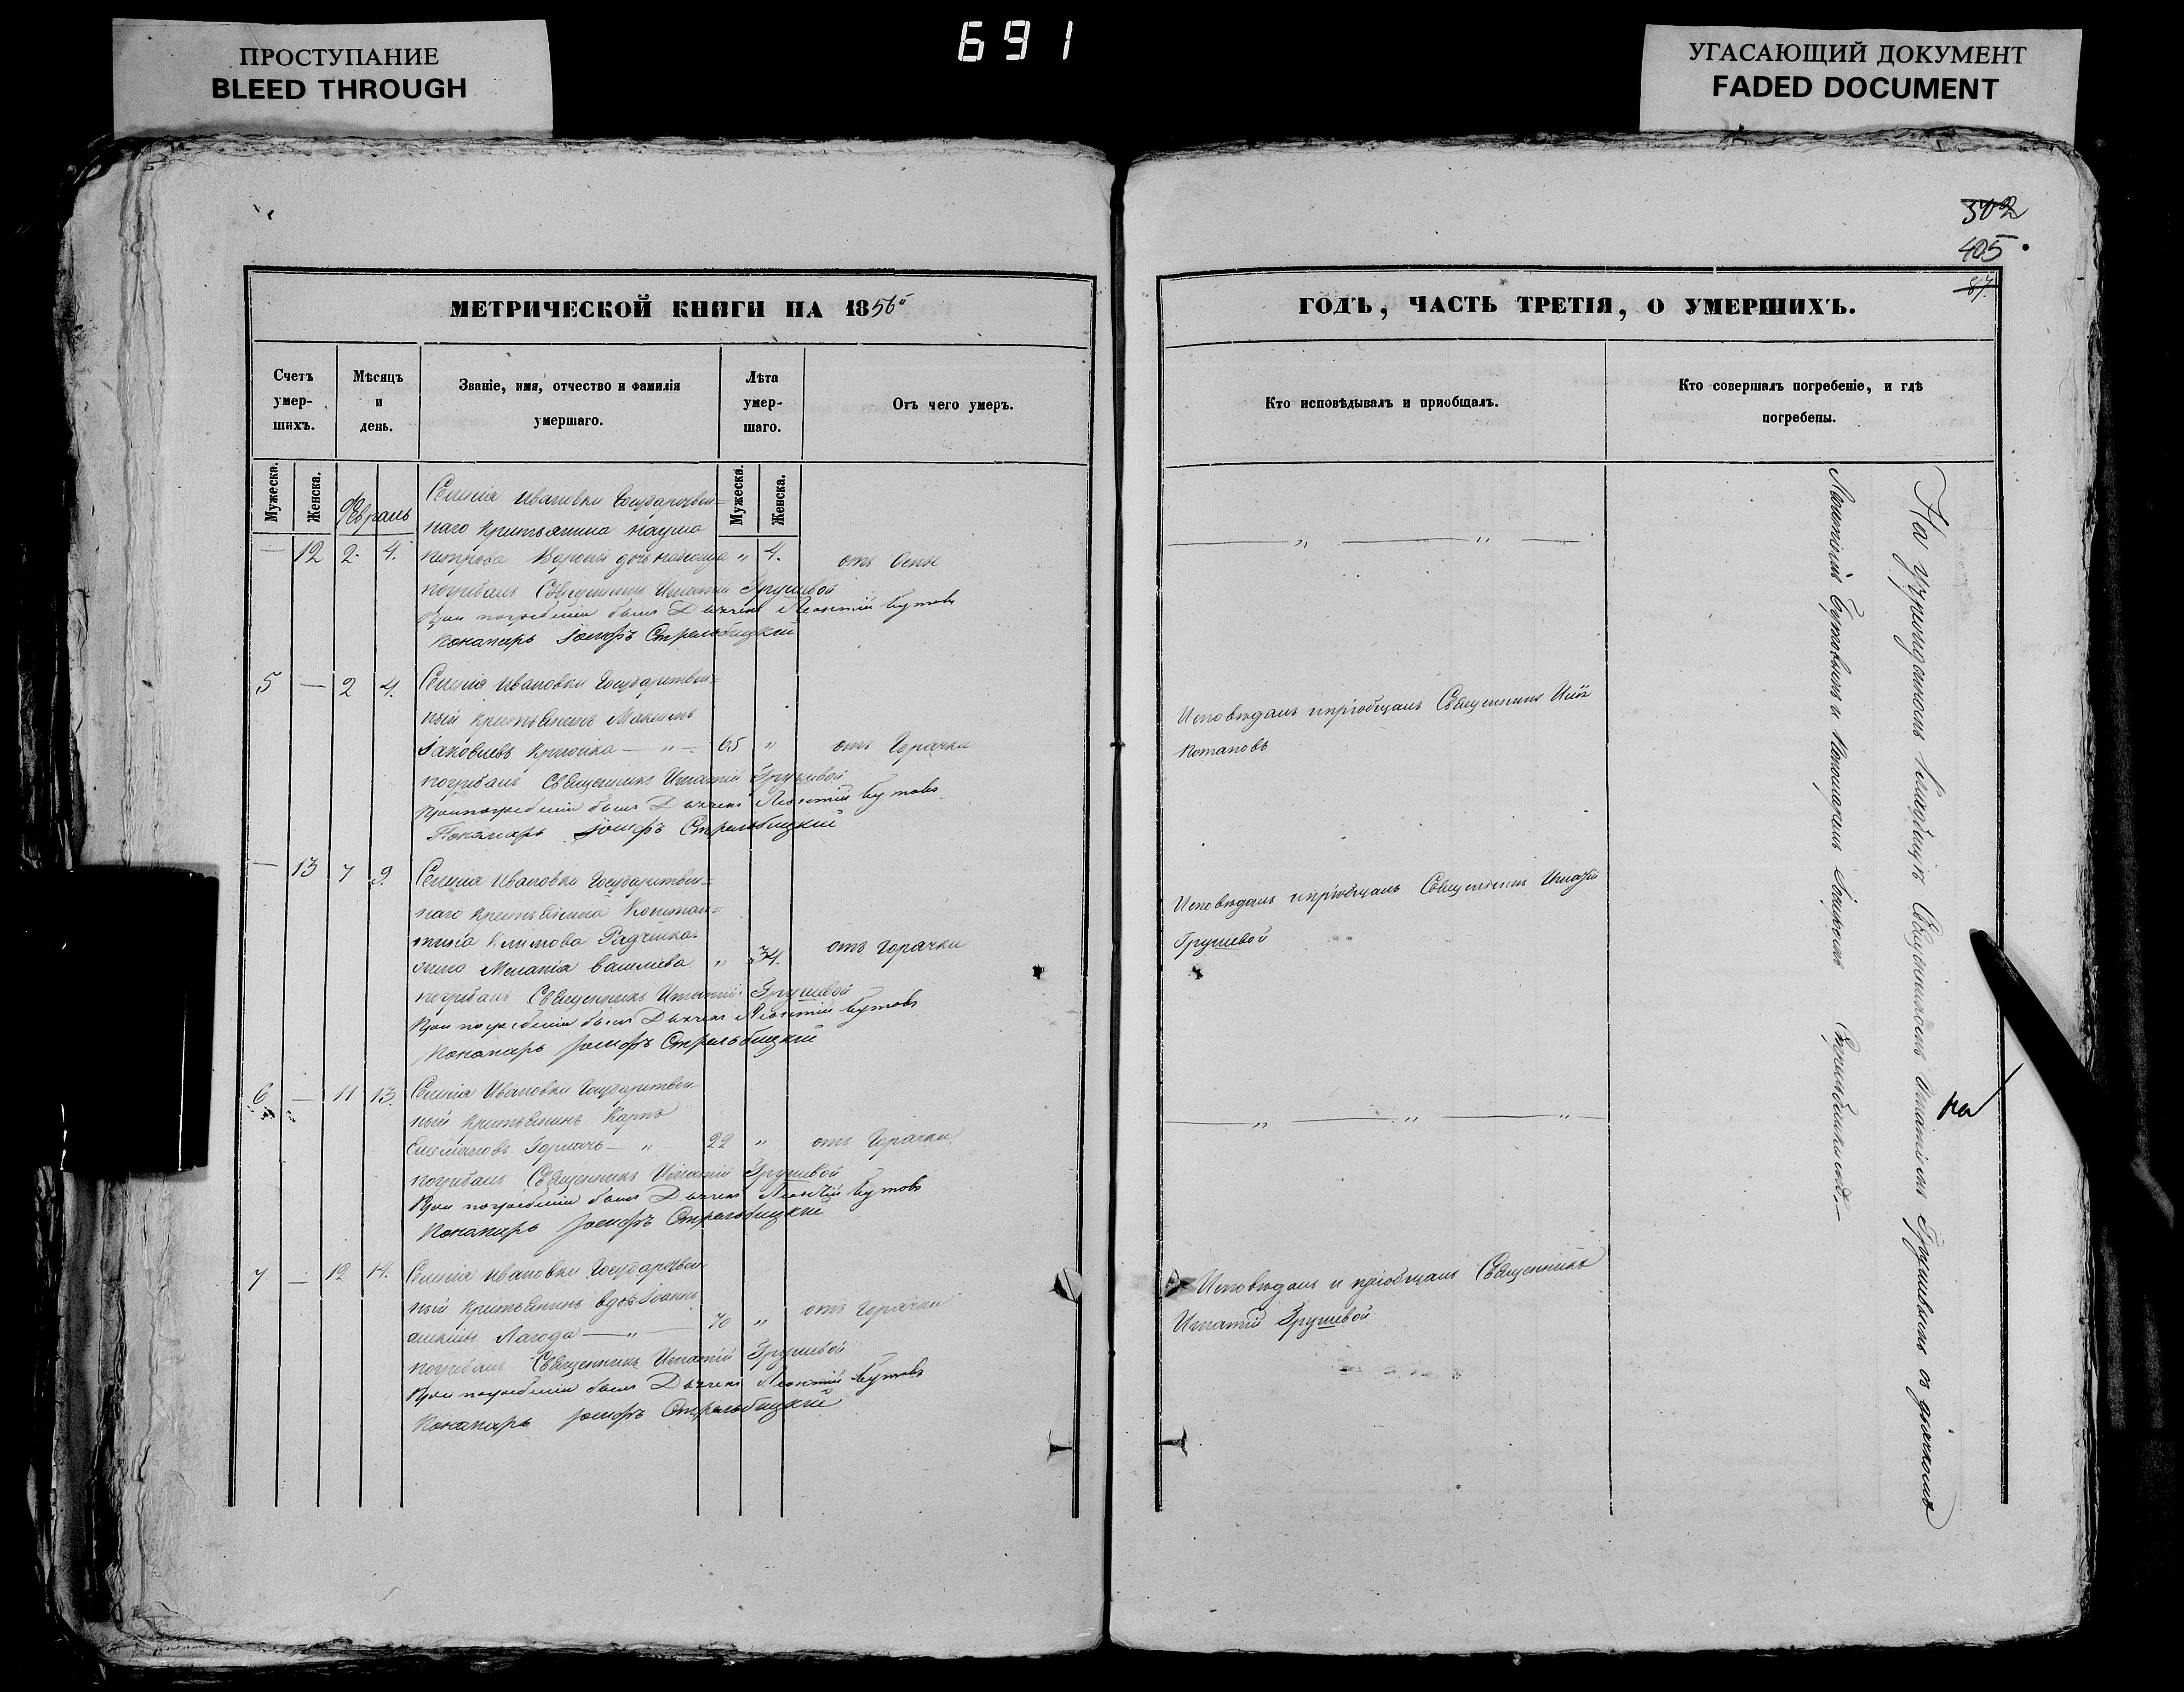 ПРОСТУПАНИЕ
BLEED THROUGH
691
УГАСАЮЩИЙ ДОКУМЕНТ
FADED DOCUMENT
302
405
87
МЕТРИЧЕСКОЙ КНИГИ НА 1856
Счетъ умер-шихъ.
Мѣсяцъ и день.
Званіе, имя, отчество и фамилія умершаго.
Лѣта умер-шаго.
Отъ чего умеръ.
Мужеска. Женска.
Мужеска. Женска.
Февраль
Селенія Ивановки Государствен=
наго крестьянина Наума
— 12 2. 4. Петрова дочь „ 4. отъ Оспы
погребалъ Священникъ Игнатій Грушевой
При погребеніи были Дьячекъ Леонтій Бутовъ
Понамарь Іосифъ Стрельбицкій
5 — 2 4. Селенія Ивановки Государствен=
ный крестьянинъ Максимъ
Яковлевъ — „ — 65 „ отъ Горячки
погребалъ Священникъ Игнатій Грушевой
При погребеніи были Дьячекъ Леонтій Бутовъ
Понамарь Іосифъ Стрельбицкій
— 13 7 9. Селенія Ивановки Государствен=
наго крестьянина Констан=
тина Климова Радченка
жена Меланія Васильева „ 34. отъ Горячки
погребалъ Священникъ Игнатій Грушевой
При погребеніи были Дьячекъ Леонтій Бутовъ
Понамарь Іосифъ Стрельбицкій
6 — 11 13. Селенія Ивановки Государствен
ный крестьянинъ Карпъ
— „ 22 „ отъ Горячки
погребалъ Священникъ Игнатій Грушевой
При погребеніи были Дьячекъ Леонтій Бутовъ
Понамарь Іосифъ Стрельбицкій
7 — 12 14. Селенія Ивановки Государствен
ный крестьянинъ вдовъ Іоаннъ
Лагода — „ — 70 „ отъ Горячки
погребалъ Священникъ Игнатій Грушевой
При погребеніи были Дьячекъ Леонтій Бутовъ
Понамарь Іосифъ Стрельбицкій
ГОДЪ, ЧАСТЬ ТРЕТІЯ, О УМЕРШИХЪ.
Кто исповѣдывалъ и пріобщалъ.
Кто совершалъ погребеніе, и гдѣ погребены.
— „ — „ —
Исповѣдалъ и пріобщалъ Священникъ
Потаповъ
Исповѣдалъ и пріобщалъ Священникъ Игнатій
Грушевой
— „ — „ — „
Исповѣдалъ и пріобщалъ Священникъ
Игнатій Грушевой
На учрежденномъ кладбищѣ Священникомъ Игнатіемъ Грушевымъ съ дьячкомъ
Леонтіемъ Бутовымъ и Понамаремъ Іосифомъ Стрельбицкимъ
на